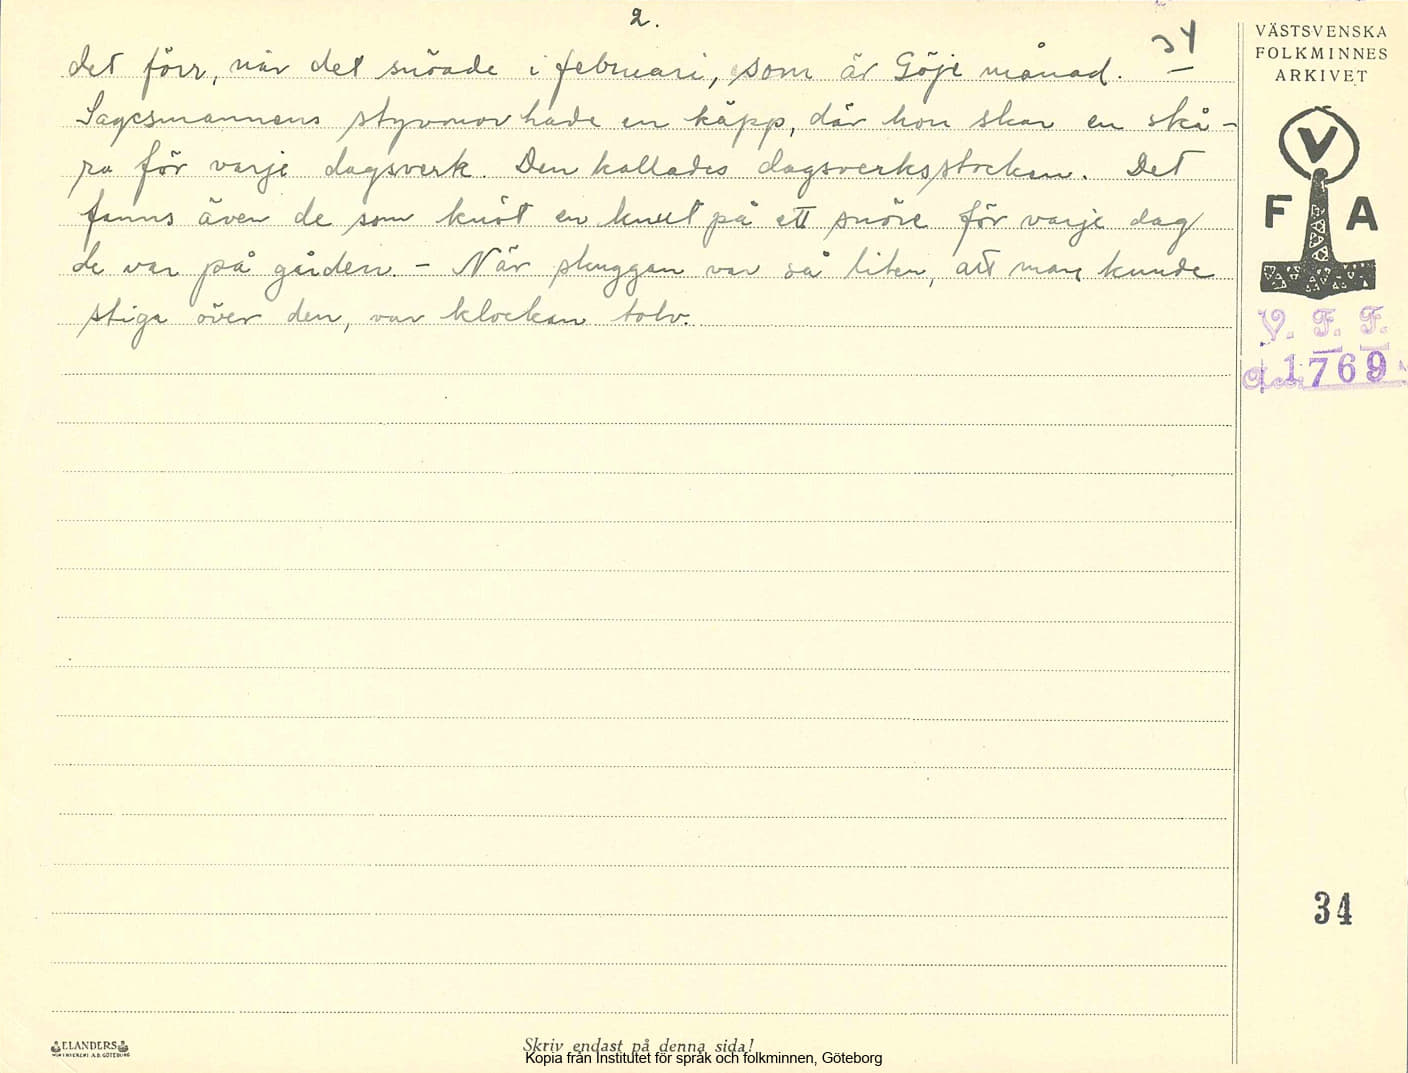 2.
34
det förr, när det snöade i februari, som är Göje månad. —
Sagesmannens styvmor hade en käpp, där hon skar en skå-
ra för varje dagsverk. Den kallades dagsverksstocken. Det
fanns även de som knöt en knut på ett snöre för varje dag
de var på gården. - När skuggan var så liten, att man kunde
stiga över den, var klockan tolv.
VÄSTSVENSKA
FOLKMINNES
ARKIVET
V
F A
V. F. F.
1769
34
ELANDERS
Skriv endast på denna sida!
Kopia från Institutet för språk och folkminnen, Göteborg